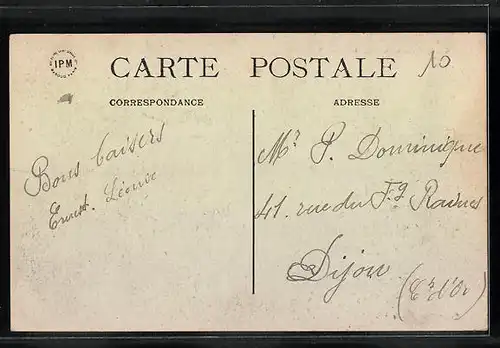 IPM
CARTE POSTALE
10
CORRESPONDANCE
ADRESSE
Bons baisers
Ernest. Léonie
Mr P. Dominique
41. rue du Fg Raines
Dijon
(Cte d'Or)